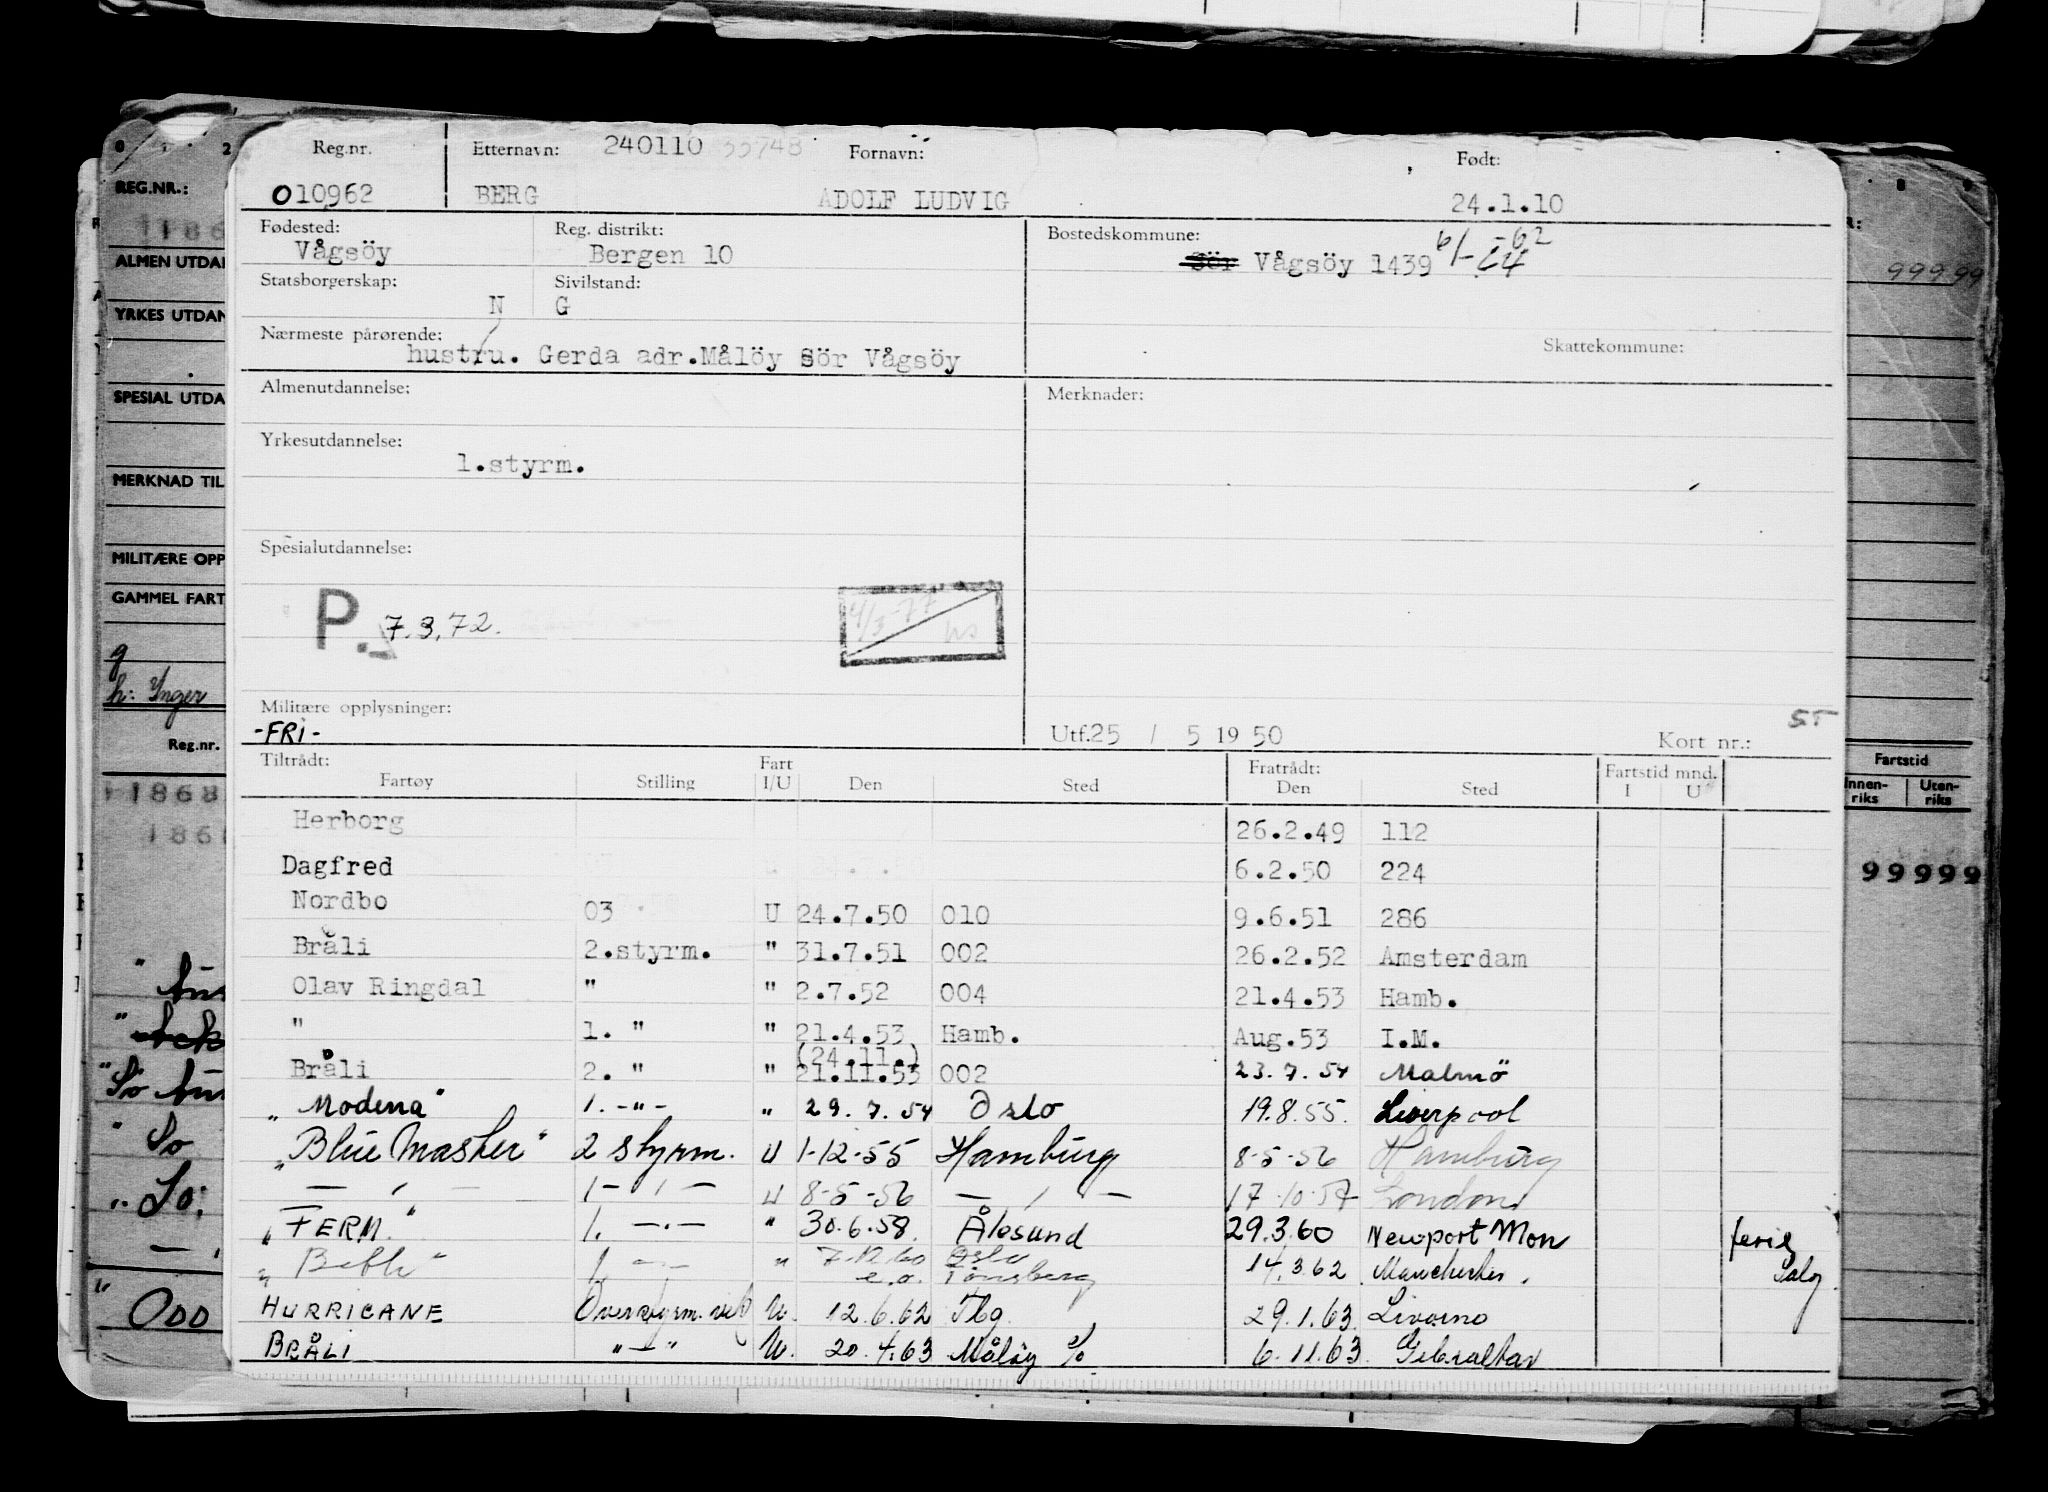 Reg.nr. Etternavn: 240110 55748 Fornavn: Født:
010962 BERG ADOLF LUDVIG 24.1.10
Fødested: Reg. distrikt: Bostedskommune:
Vågsöy Bergen 10 Sör Vågsöy 1439
Statsborgerskap: Sivilstand:
N G
Nærmeste pårørende: Skattekommune:
hustru. Gerda adr.Målöy Sör Vågsöy
Almenutdannelse: Merknader:
Yrkesutdannelse:
1.styrm.
Spesialutdannelse:
P. 7.3.72.
4/3-77
Militære opplysninger:
-FRI- Utf.25 / 5 19 50 Kort nr.: ST
Tiltrådt: Fart Fratrådt: Fartstid mnd.
Fartøy Stilling I/U Den Sted Den Sted I U
Herborg 26.2.49 112
Dagfred 6.2.50 224
Nordbo 03 U 24.7.50 010 9.6.51 286
Bråli 2.styrm. " 31.7.51 002 26.2.52 Amsterdam
Olav Ringdal " " 2.7.52 004 21.4.53 Hamb.
" 1. " " 21.4.53 Hamb. Aug.53 I.M.
(24.11.)
Bråli 2. " " 21.11.53 002 23.7.54 Malmö
"Modena" 1. -"- " 29.7.54 Oslo 19.8.55. Liverpool
"Blue Master" 2 styrm. U 1-12-55 Hamburg 8-5-56 Hamburg
— " — 1 - " - U 8-5-56 — " — 17.10.57 London
"FERM." 1. -"- " 30.6.58. Ålesund 29.3.60 Newport Mon ferie
"Beth" 1 -"- " 7.12.60 Oslo 14.3.62 Manchester.
e.o. Tönsberg
HURRICANE Overstyrm. U. 12.6.62 Tbg. 29.1.63. Livorno
BRÅLI "-" U. 20.4.63 Måløy 6.11.63. Gibraltar
REG.NR.:
ALMEN UTDAN
YRKES UTDAN
SPESIAL UTDA
MERKNAD TIL
MILITÆRE OPP
GAMMEL FART
g
h: Inger
Reg.nr.
"So
ODD
99999
Fartstid
Innen-riks Uten-riks
99999